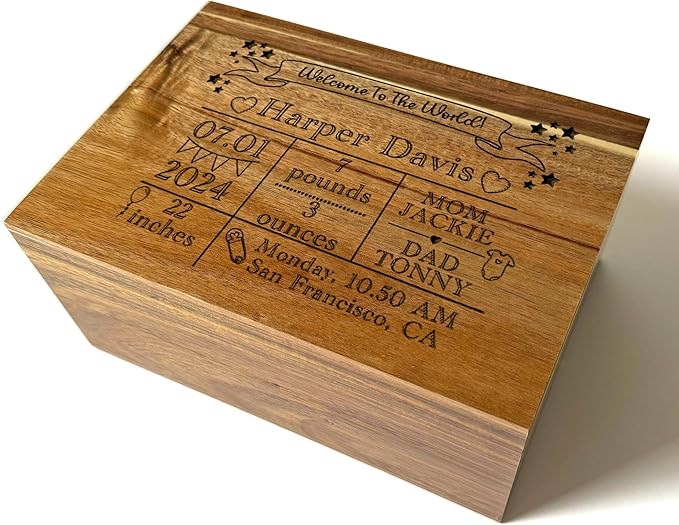 Welcome To The World!
Harper Davis
07.01
2024
7
pounds
3
ounces
MOM
JACKIE
DAD
TONNY
22
inches
Monday, 10.50 AM
San Francisco, CA